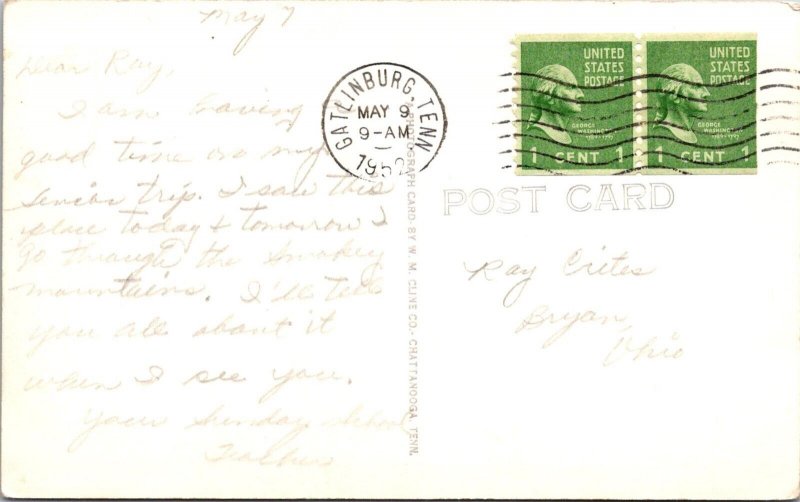 May 7
Dear Ray,
I am having
good time on my
senior trip. I saw this
place today & tomorrow I
go through the Smokey
mountains. I'll tell
you all about it
when I see you.
Your Sunday School
Teacher
GATLINBURG, TENN.
MAY 9
9-AM
1952
UNITED
STATES
POSTAGE
GEORGE
WASHINGTON
1789-1797
1 CENT 1
UNITED
STATES
POSTAGE
GEORGE
WASHINGTON
1789-1797
1 CENT 1
POST CARD
Ray Crites
Bryan,
Ohio
PHOTOGRAPH CARD BY W. M. CLINE CO., CHATTANOOGA, TENN.